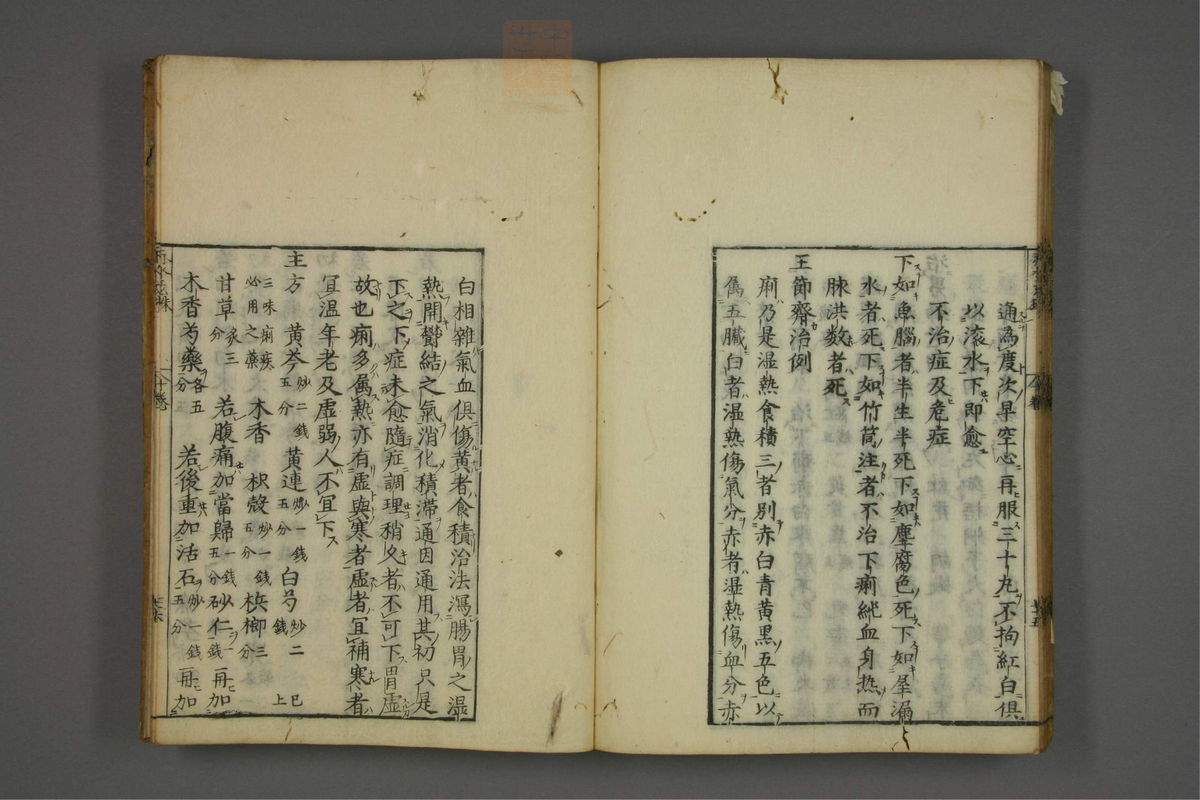 通為度次早空心再服三十九不拘紅白俱
以滚水下即愈
不治症及危症
下如魚腦者半生半死下如塵腐色死下如屋漏
水者死下如竹筒注者不治下痢純血身熱而
脉洪数者死
王節齋治例
痢乃是湿熱食積三者別赤白青黄黒五色以
属五臓白者湿熱傷氣分赤者湿熱傷血分赤
白相雜氣血俱傷黄者食積治法瀉腸胃之湿
熱開欝結之氣消化積滞通因通用其初只是
下之下症未愈隨症調理稍久者不可下胃虚
故也痢多属熱亦有虚與寒者虚者宜補寒者
宜温年老及虚弱人不宜下
主方 黄芩炒二錢五分 黄連炒一錢五分 白芍炒二錢 已上
三味痢疾必用之藥 木香 枳殻炒一錢五分 梹榔三分
甘草炙三分 若腹痛加當歸一錢五分砂仁一錢再加
木香芍藥各五分 若後重加活石炒一錢五分再加
十巻
廿五
廿六